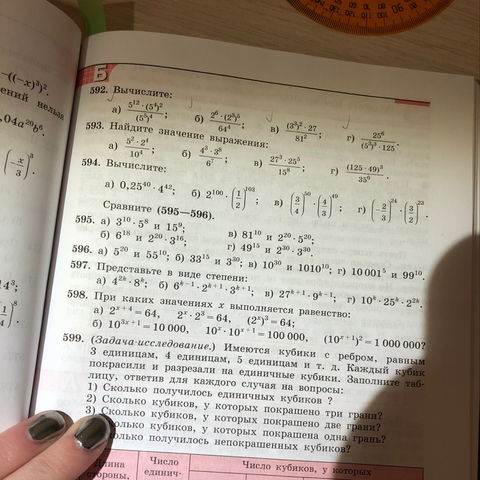 −((−x)³)².
ений нельзя
,04a²⁰b⁶.
(−x/3)³
14³;
Б
592. Вычислите:
а) 5¹²·(5⁴)²/(5⁵)⁴; б) 2⁶·(2³)⁵/64⁴; в) (3³)²·27/81²; г) 25⁶/(5³)³·125
593. Найдите значение выражения:
а) 5²·2⁴/10⁴; б) 4³·3⁸/6⁷; в) 27³·25⁵/15⁸; г) (125·49)³/35⁶
594. Вычислите:
а) 0,25⁴⁰ · 4⁴²; б) 2¹⁰⁰ · (1/2)¹⁰³; в) (3/4)⁵⁰ · (4/3)⁴⁹; г) (−2/3)²⁴ · (3/2)²³.
Сравните (595—596).
595. а) 3¹⁰ · 5⁸ и 15⁹; в) 81¹⁰ и 2²⁰ · 5²⁰;
б) 6¹⁸ и 2²⁰ · 3¹⁶; г) 49¹⁵ и 2³⁰ · 3³⁰.
596. а) 5²⁰ и 55¹⁰; б) 33¹⁵ и 3³⁰; в) 10³⁰ и 1010¹⁰; г) 10 001⁵ и 99¹⁰.
597. Представьте в виде степени:
а) 4²ᵏ · 8ᵏ; б) 6ᵏ⁻¹ · 2ᵏ⁺¹ · 3ᵏ⁺¹; в) 27ᵏ⁺¹ · 9ᵏ⁻¹; г) 10ᵏ · 25ᵏ · 2²ᵏ
598. При каких значениях x выполняется равенство:
а) 2ˣ⁺⁴ = 64, 2ˣ · 2³ = 64, (2ˣ)³ = 64;
б) 10³ˣ⁺¹ = 10 000, 10ˣ · 10ˣ⁺¹ = 100 000, (10ˣ⁺¹)² = 1 000 000?
599. (Задача-исследование.) Имеются кубики с ребром, равным
3 единицам, 4 единицам, 5 единицам и т. д. Каждый кубик
покрасили и разрезали на единичные кубики. Заполните таб-
лицу, ответив для каждого случая на вопросы:
1) Сколько получилось единичных кубиков ?
2) Сколько кубиков, у которых покрашено три грани?
3) Сколько кубиков, у которых покрашено две грани?
колько кубиков, у которых покрашена одна грань?
колько получилось непокрашенных кубиков?
Длина Число Число кубиков, у которых
стороны, единич-